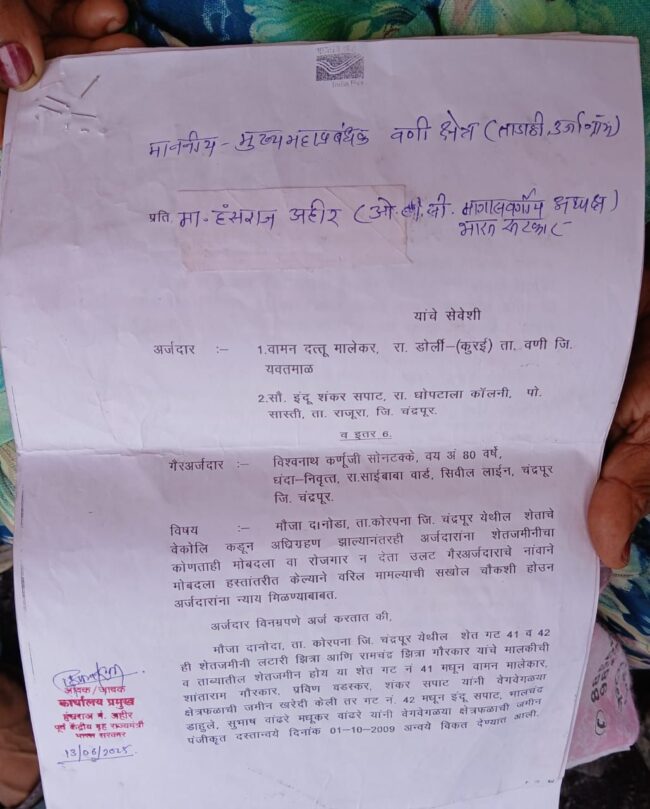 India Post
माननीय - मुख्यमहाप्रबंधक वणी क्षेत्र (ताडाळी, उर्जाग्राम)
प्रति मा. हंसराज अहीर (ओ. बी. सी. अध्यक्ष)
भारत सरकार
यांचे सेवेशी
अर्जदार :– 1.वामन दत्तू मालेकर, रा. डोर्ली–(कुरई) ता. वणी जि.
यवतमाळ
2.सौ. इंदू शंकर सपाट, रा. धोपटाला कॉलनी, पो.
सास्ती, ता. राजूरा, जि. चंद्रपूर.
व इतर 6.
गैरअर्जदार :– विश्वनाथ कर्णूजी सोनटक्के, वय अं 80 वर्षे,
धंदा–निवृत्त, रा.साईबाबा वार्ड, सिवील लाईन, चंद्रपूर
जि. चंद्रपूर.
विषय :– मौजा दानोडा, ता.कोरपना जि. चंद्रपूर येथील शेताचे
वेकोलि कडून अधिग्रहण झाल्यानंतरही अर्जदारांना शेतजमीनीचा
कोणताही मोबदला वा रोजगार न देता उलट गैरअर्जदाराचे नांवाने
मोबदला हस्तांतरीत केल्याने वरिल मामल्याची सखोल चौकशी होउन
अर्जदारांना न्याय मिळण्याबाबत.
अर्जदार विनम्रपणे अर्ज करतात की,
मौजा दानोदा, ता. कोरपना जि. चंद्रपूर येथील शेत गट 41 व 42
ही शेतजमीनी लटारी झित्रा आणि रामचंद्र झित्रा गौरकार यांचे मालकीची
व ताब्यातील शेतजमीन होय या शेत गट नं 41 मधून वामन मालेकार,
शांताराम गौरकार, प्रविण वडस्कर, शंकर सपाट यांनी वेगवेगळ्या
क्षेत्रफळाची जमीन खरेदी केली तर गट नं. 42 मधून इंदू सपाट, भालचंद्र
डाहुले, सुभाष वांढरे मधूकर वांढरे यांनी वेगवेगळ्या क्षेत्रफळाची जमीन
पंजीकृत दस्तान्वये दिनांक 01-10-2009 अन्वये विकत देण्यात आली.
आवक/जावक
कार्यालय प्रमुख
हंसराज गं. अहीर
पूर्व केंद्रीय गृह राज्यमंत्री
भारत सरकार
13/06/2025